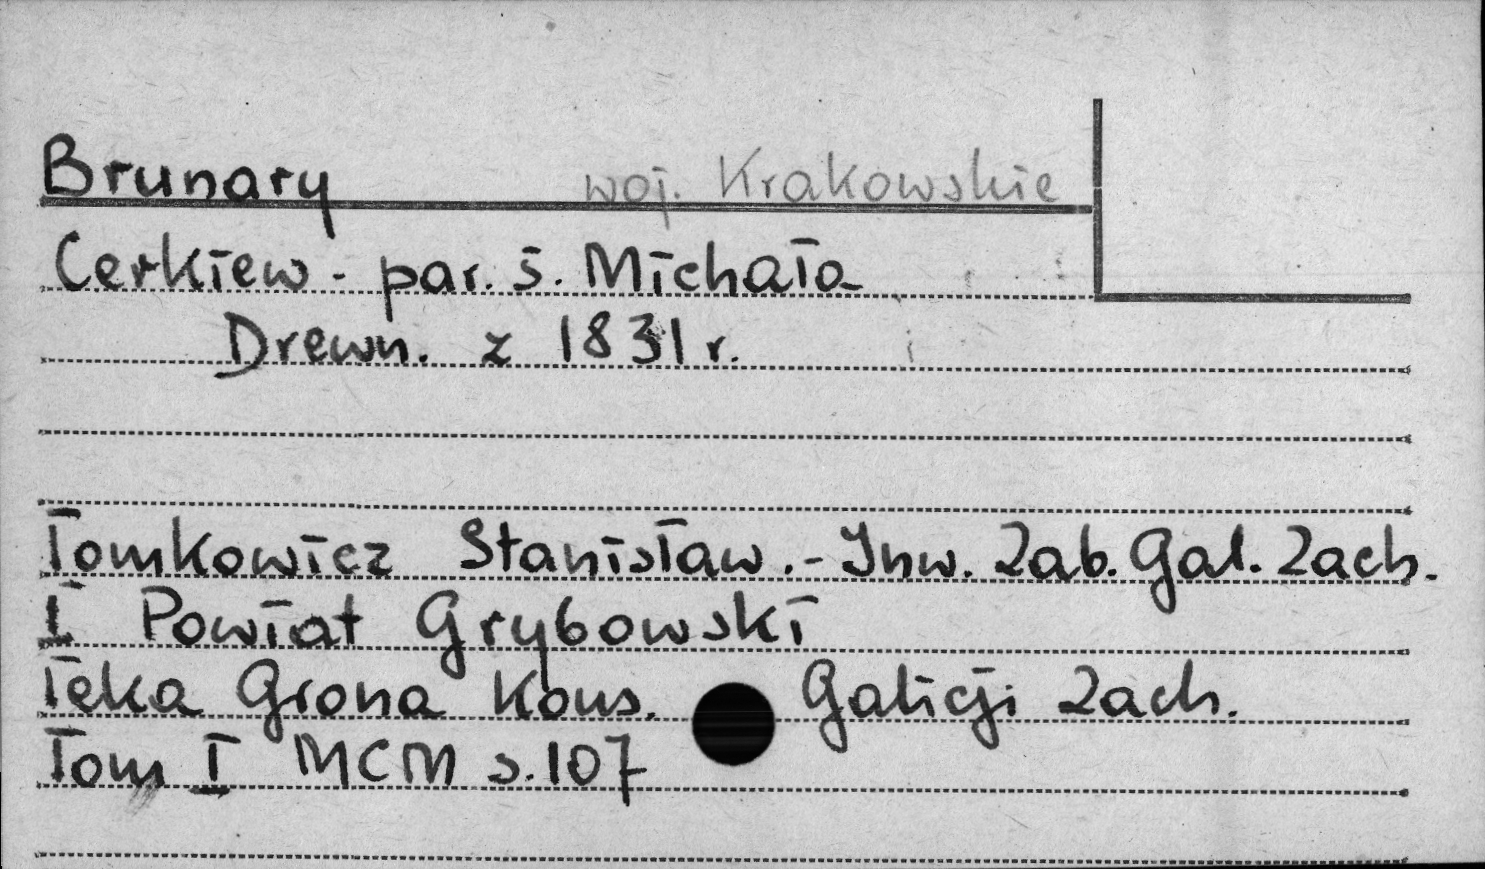 Brunary woj. Krakowskie
Cerkiew - par. ś. Michała
Drewn. z 1831 r.
Tomkowicz Stanisław. - Inw. Zab. Gal. Zach.
I Powiat Grybowski
Teka Grona Kons. Galicji Zach.
Tom I MCM s. 107